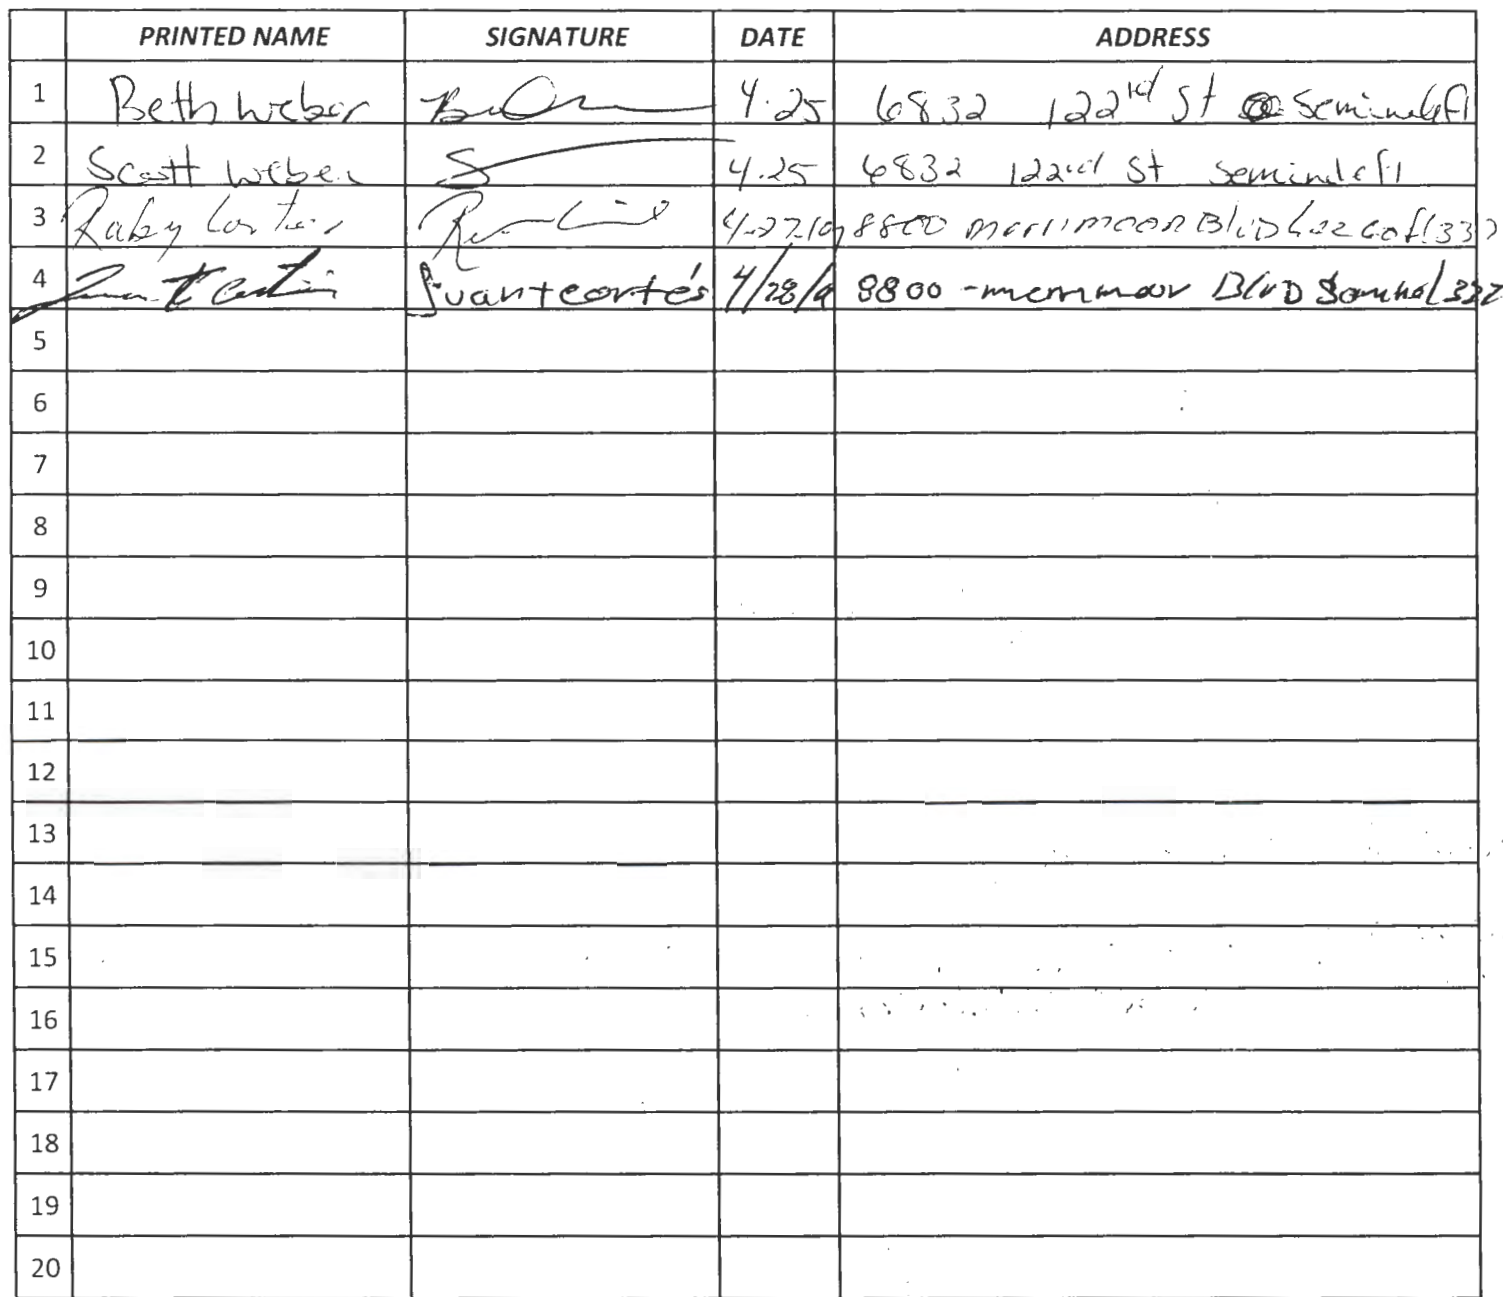 PRINTED NAME SIGNATURE DATE ADDRESS
1 Beth Weber 4.25 6832 122rd St Seminole fl
2 Scott Weber S 4.25 6832 122rd St Seminole fl
3 Ruby 4-27-19 8800 Merrimoor BlvD
4 Juan t cortés 4/28/19 8800 - merrimoor BlvD
5
6
7
8
9
10
11
12
13
14
15
16
17
18
19
20